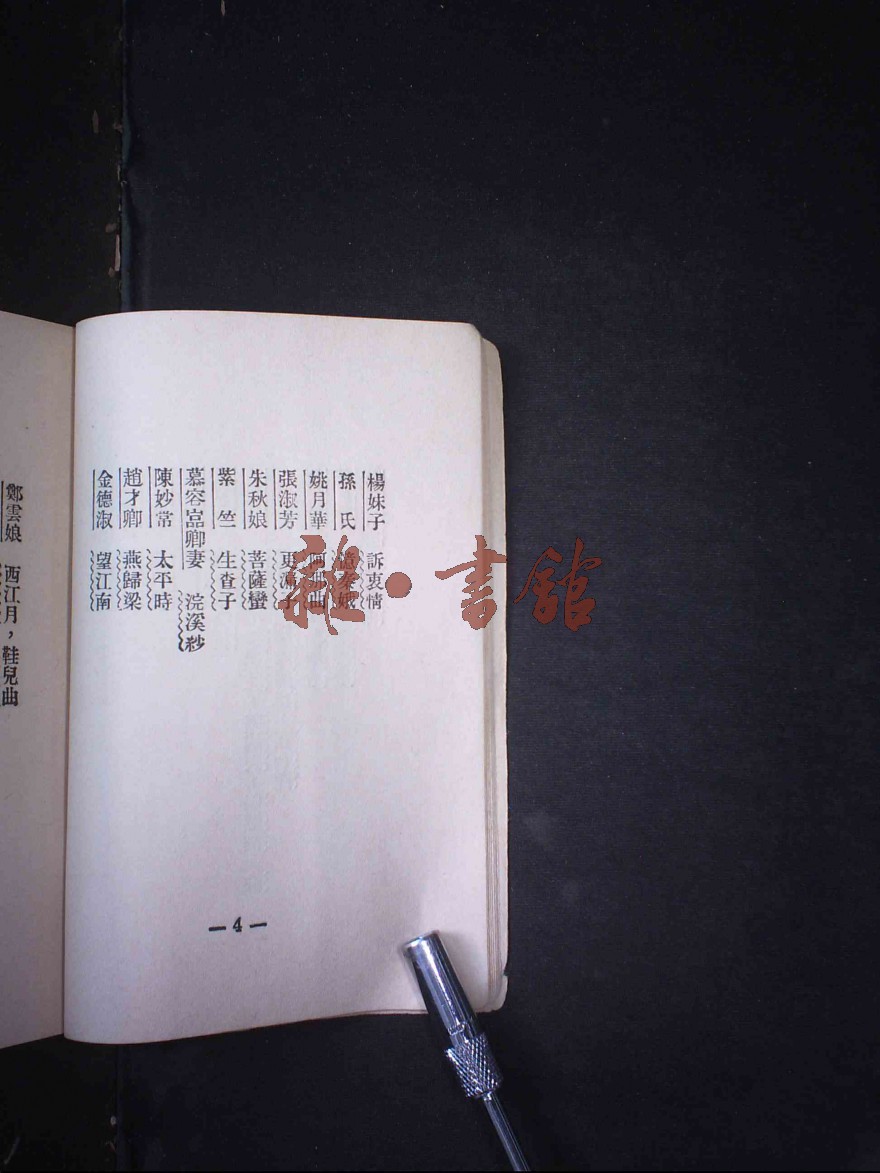 楊妹子　訴衷情
孫　氏　憶秦娥
姚月華　阿那曲
張淑芳　更漏子
朱秋娘　菩薩蠻
紫　竺　生查子
慕容嵓卿妻　浣溪紗
陳妙常　太平時
趙才卿　燕歸梁
金德淑　望江南
—4—
鄭雲娘　西江月，鞋兒曲
雜·書館